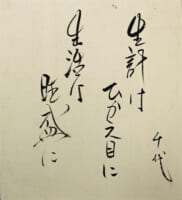 生計は
ひかえ目に
生活は
旺盛に
千代